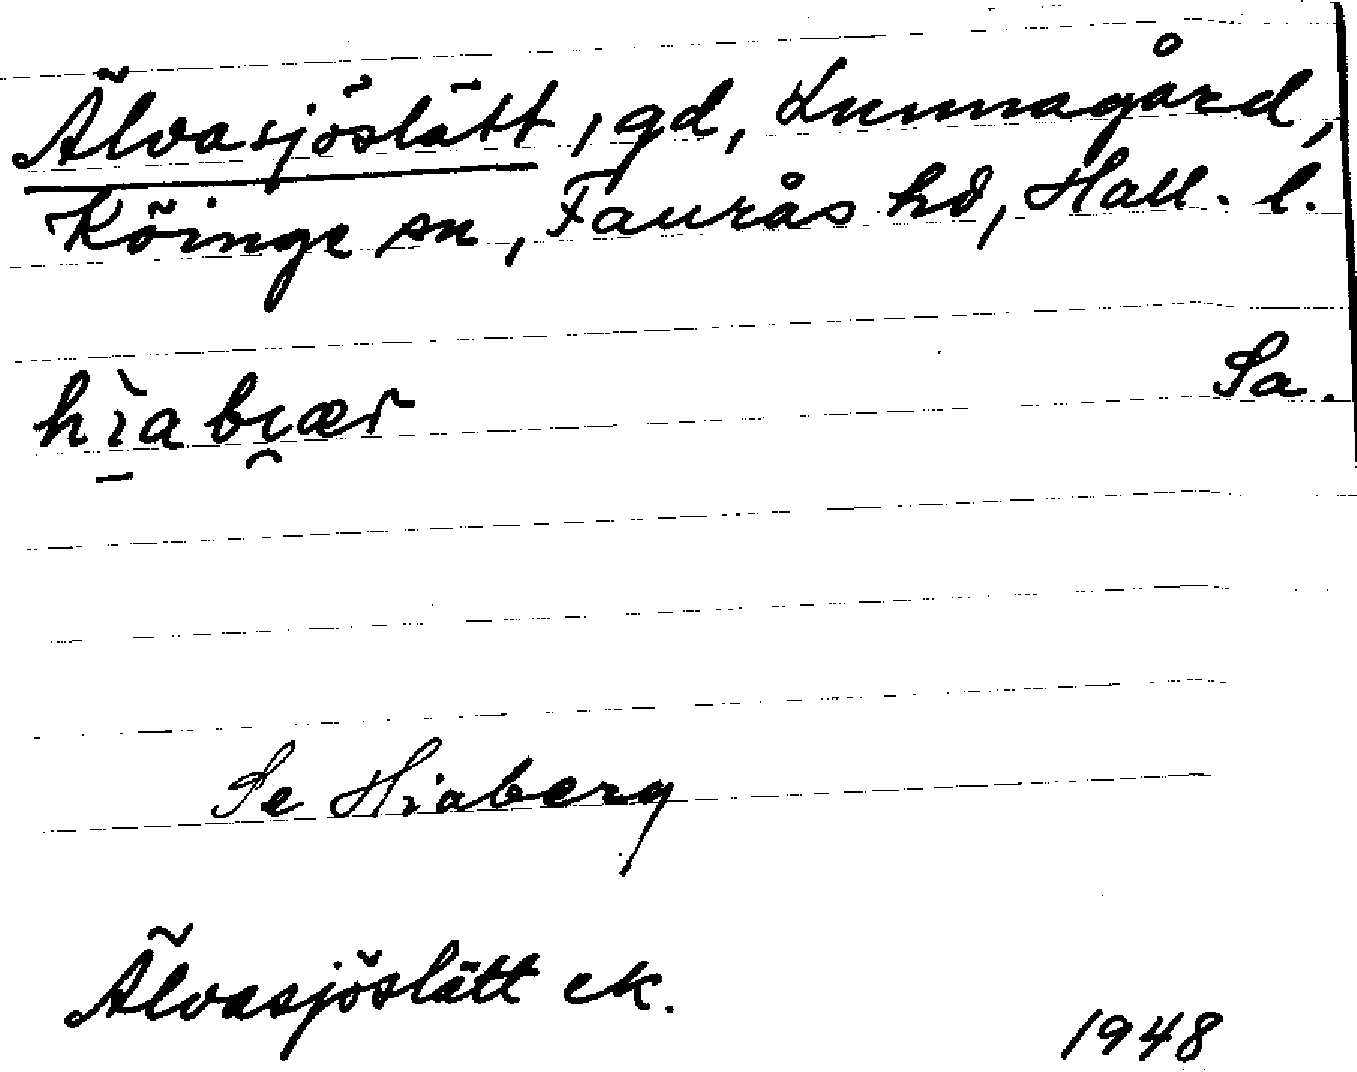 Älvasjöslätt, gd, Lunnagård,
Köinge sn, Faurås hd, Hall. l.
hìabi̯ær Sa.
Se Hiaberg
Älvasjöslätt ek.
1948